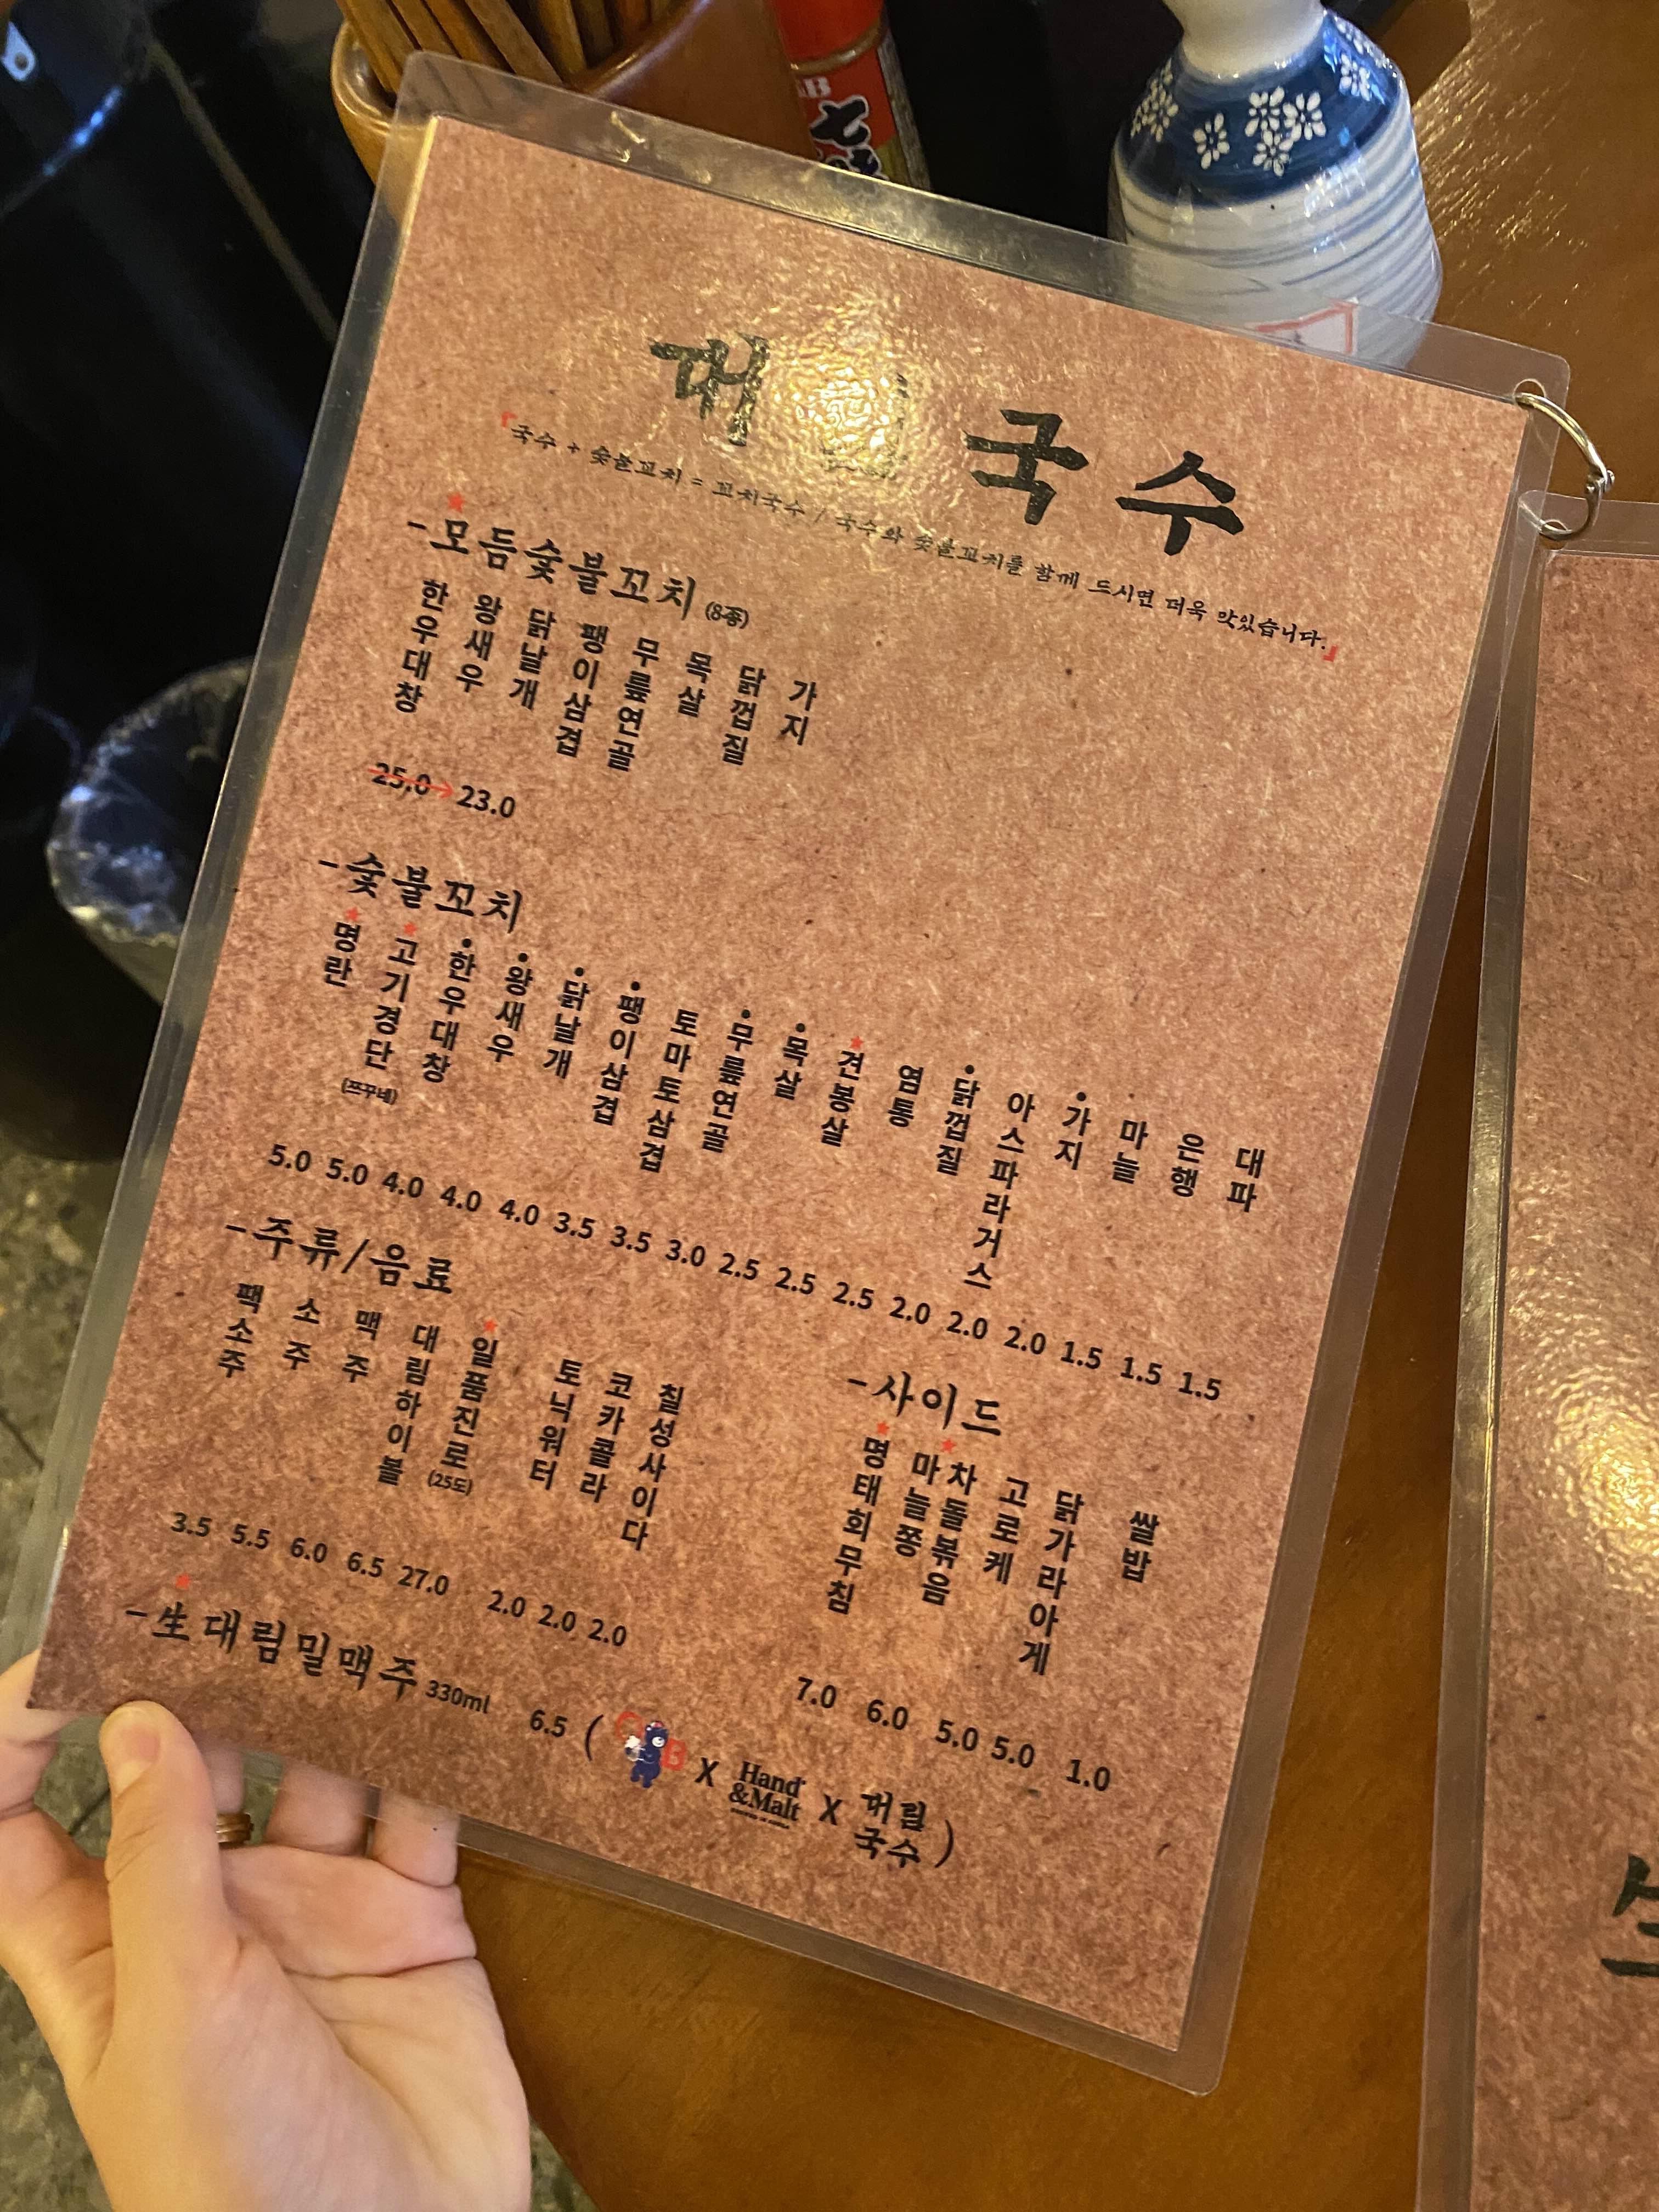 대 국수
「국수 + 숯불꼬치 = 꼬치국수 / 국수와 숯불꼬치를 함께 드시면 더욱 맛있습니다.」
-모듬숯불꼬치 (8종)
한우대창
왕새우
닭날개
팽이삼겹
무릎연골
목살
닭껍질
가지
25.0→23.0
-숯불꼬치
명란
고기경단
(쯔꾸네)
한우대창
왕새우
닭날개
팽이삼겹
토마토삼겹
무릎연골
목살
견봉살
염통
닭껍질
아스파라거스
가지
마늘
은행
대파
5.0 5.0 4.0 4.0 4.0 3.5 3.5 3.0 2.5 2.5 2.5 2.0 2.0 2.0 1.5 1.5 1.5
-주류/음료
팩소주
소주
맥주
대림하이볼
일품진로
(25도)
토닉워터
코카콜라
칠성사이다
3.5 5.5 6.0 6.5 27.0 2.0 2.0 2.0
-사이드
명태회무침
마늘쫑
차돌볶음
고로케
닭가라아게
쌀밥
7.0 6.0 5.0 5.0 1.0
-生대림밀맥주 330ml 6.5 ( X Hand &Malt X 대림국수 )